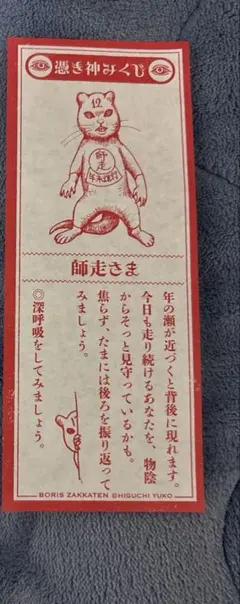 憑き神みくじ
12
師走
年末進行
師走さま
年の瀬が近づくと背後に現れます。
今日も走り続けるあなたを、物陰
からそっと見守っているかも。
焦らず、たまには後ろを振り返って
みましょう。
◎深呼吸をしてみましょう。
BORIS ZAKKATEN ©HIGUCHI YUKO